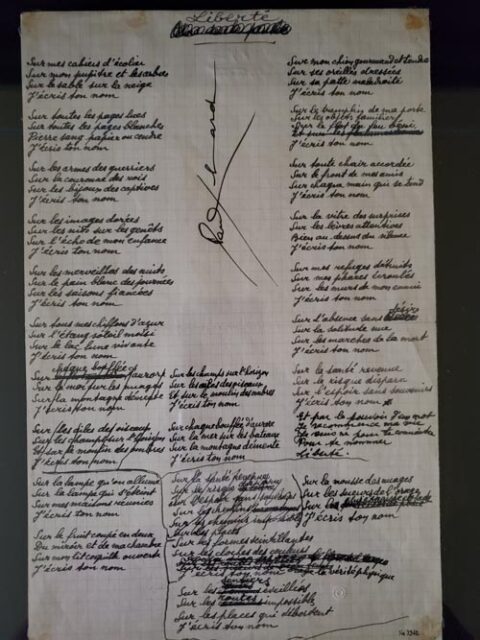 Liberté
Sur mes cahiers d'écolier
Sur mon pupitre et les arbres
Sur le sable sur la neige
J'écris ton nom
Sur toutes les pages lues
Sur toutes les pages blanches
Pierre sang papier ou cendre
J'écris ton nom
Sur les armes des guerriers
Sur la couronne des rois
Sur les bijoux des captives
J'écris ton nom
Sur les images dorées
Sur les nids sur les genêts
Sur l'écho de mon enfance
J'écris ton nom
Sur les merveilles des nuits
Sur le pain blanc des journées
Sur les saisons fiancées
J'écris ton nom
Sur tous mes chiffons d'azur
Sur l'étang soleil moisi
Sur le lac lune vivante
J'écris ton nom
chaque bouffée d'
Sur aurore
Sur la mer sur les
Sur la montagne démente
J'écris ton nom
Sur les ailes des oiseaux
Sur les champs sur l'horizon
Et sur le moulin des ombres
J'écris ton nom
Sur la lampe qui s'allume
Sur la lampe qui s'éteint
Sur mes maisons réunies
J'écris ton nom
Sur le fruit coupé en deux
Du miroir et de ma chambre
Sur mon lit coquille ouverte
J'écris ton nom
Paul Eluard
Sur les champs sur l'horizon
Sur les ailes des oiseaux
Et sur le moulin des ombres
J'écris ton nom
Sur chaque bouffée d'aurore
Sur la mer sur les bateaux
Sur la montagne démente
J'écris ton nom
Sur la santé revenue
Sur le risque
Sur l'espoir sans souvenirs
Sur les chemins
Sur les chemins
Sur les formes scintillantes
Sur les cloches des couleurs
J'écris ton nom la vérité physique
sentiers
Sur les éveillés
routes
Sur les
Sur les places qui débordent
J'écris ton nom
Sur mon chien gourmand et tendre
Sur ses oreilles dressées
Sur sa patte maladroite
J'écris ton nom
Sur le tremplin de ma porte
Sur les objets familiers
Sur le flot du feu béni
J'écris ton nom
Sur toute chair accordée
Sur le front de mes amis
Sur chaque main qui se tend
J'écris ton nom
Sur la vitre des surprises
Sur les lèvres attentives
Bien au-dessus du silence
J'écris ton nom
Sur mes refuges détruits
Sur mes phares écroulés
Sur les murs de mon ennui
J'écris ton nom
désirs
Sur l'absence sans
Sur la solitude nue
Sur les marches de la mort
J'écris ton nom
Sur la santé revenue
Sur le risque disparu
Sur l'espoir sans souvenirs
J'écris ton nom
Et par le pouvoir d'un mot
Je recommence ma vie
Je suis né pour te connaître
Pour te nommer
Liberté.
Sur la mousse des nuages
Sur les sueurs de l'orage
Sur
J'écris ton nom